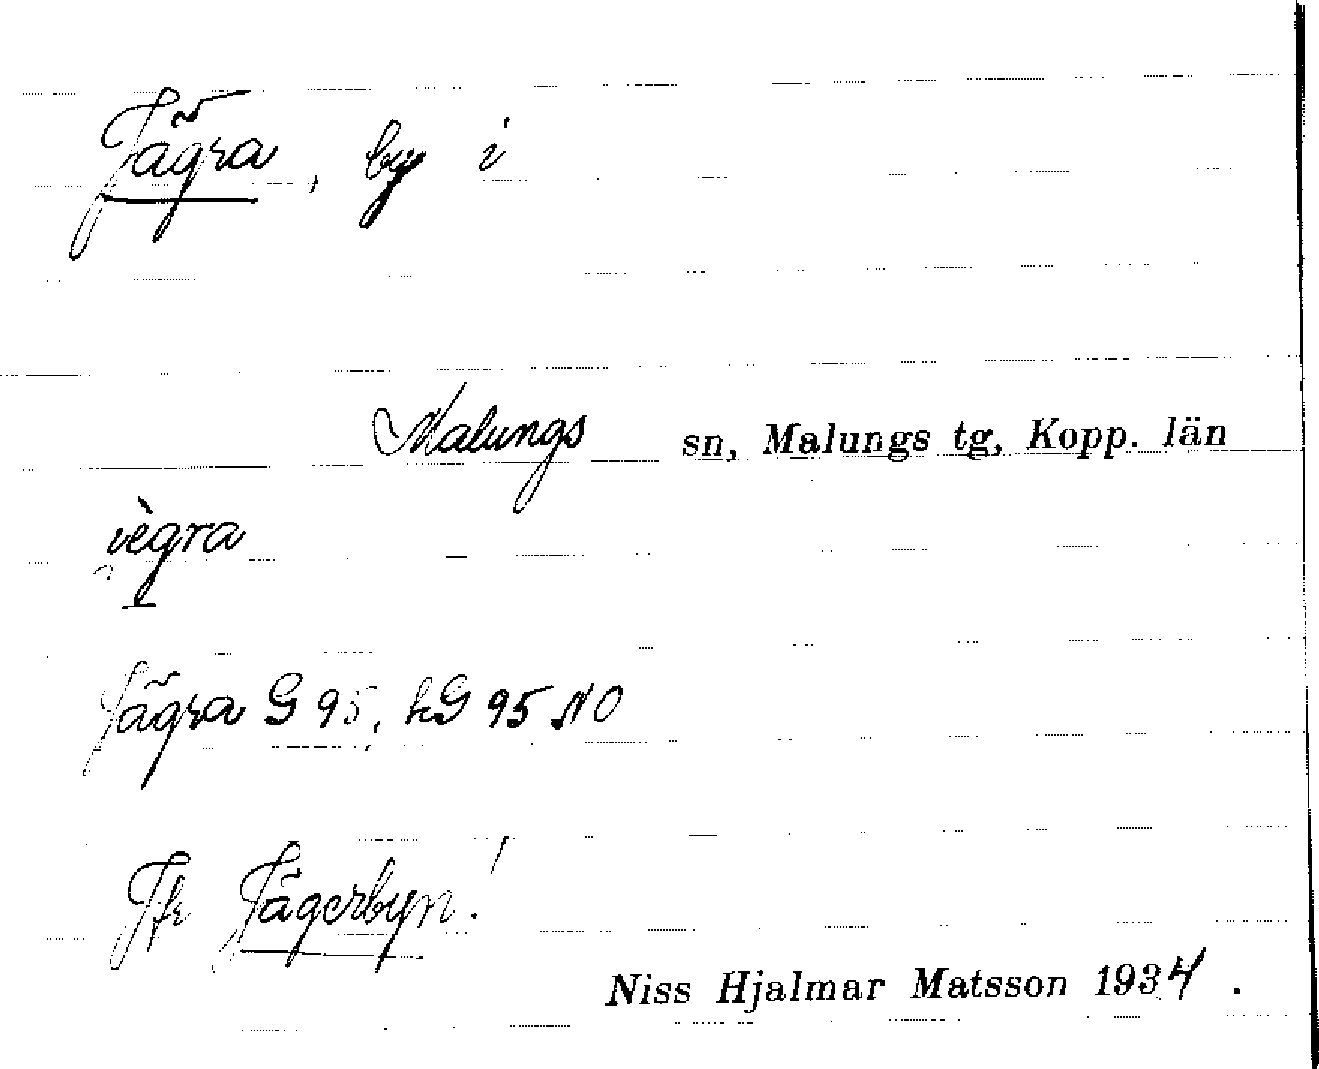 Jägra, by i
Malungs sn, Malungs tg, Kopp. län
Jägra G 95, hG 95 NO
Jfr Jägerbyn!
Niss Hjalmar Matsson 1934.